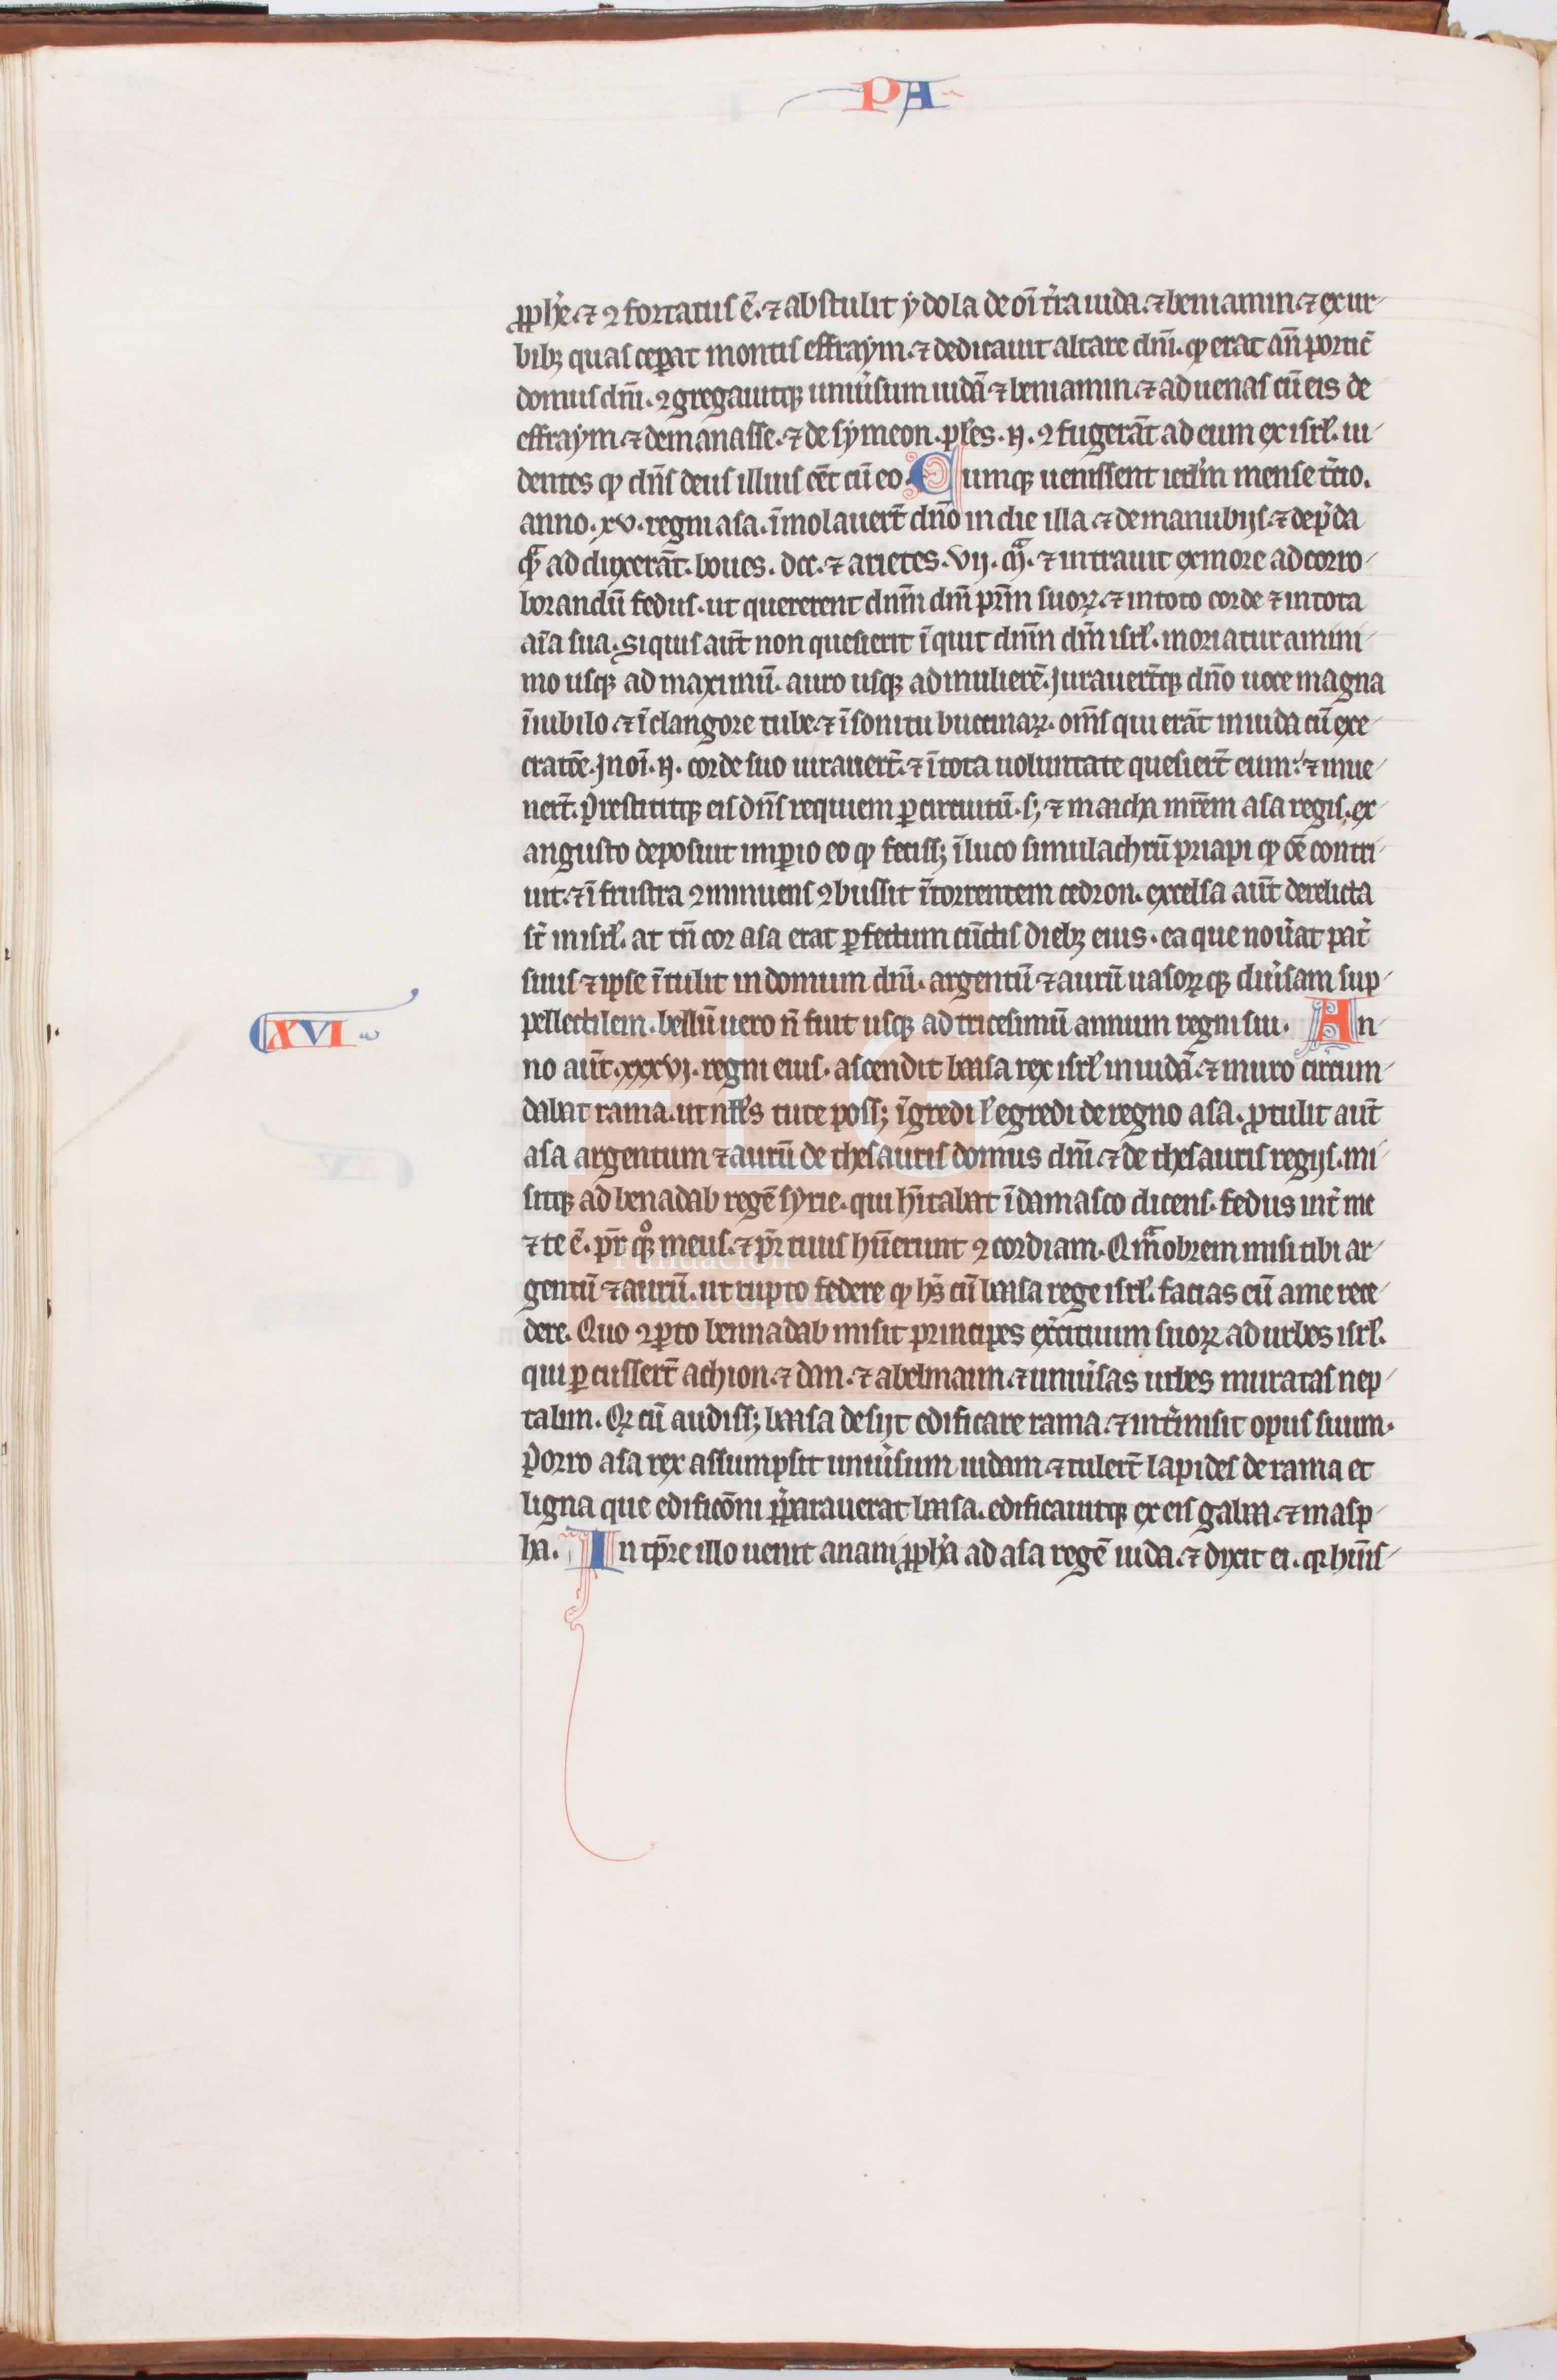 PA
ꝓph̄e. ⁊ ꝯfortatus ē. ⁊ abstulit ydola de oī t̄ra iuda. ⁊ beniamin. ⁊ ex ur-
bibꝫ quas ceꝑat montis effraym. ⁊ dedicauit altare dn̄i. ꝙ erat an̄ portic̄
domus dn̄i. ꝯgregauitqꝫ uniu̾sum iudā ⁊ beniamin. ⁊ aduenas cū eis de
effraym ⁊ de manasse. ⁊ de symeon. pl̾es. n̄. ꝯfugerāt ad eum ex isrl̄. ui-
dentes ꝙ dn̄s deus illius eēt cū eo. Cumqꝫ uenissent ierl̄m mense t̾cio.
anno. xv. regni asa. īmolauert̄ dn̄o in die illa ⁊ de manubijs. ⁊ de p̄da
qᷓ adduxerāt. boues. dcc. ⁊ arietes. vij. mᷓ. ⁊ intrauit ex more ad corro-
borandū fedus. ut quererent dnm̄ dm̄ prm̄ suoꝝ. ⁊ in toto corde ⁊ in tota
aīa sua. Si quis aūt non quesierit īquit dnm̄ dm̄ isrl̄. moriatur a mini-
mo usqꝫ ad maximū. a uiro usqꝫ ad mulierē. Jurauert̄qꝫ dn̄o uoce magna
ī iubilo. ⁊ ī clangore tube. ⁊ ī sonitu buccinaꝝ. oms̄ qui erāt in iuda cū exe-
cratōe. Jn oī. n̄. corde suo iurauert̄. ⁊ ī tota uoluntate quesiert̄ eum. ⁊ inue-
nert̄. p̄restititqꝫ eis dn̄s requiem ꝑ circuitū. sꝫ ⁊ maacha mr̄em asa regis. ex
angusto deposuit imꝑio eo ꝙ fecissꝫ ī luco simulachrū priapi ꝙ oē contri-
uit. ⁊ ī frustra ꝯminuens ꝯbussit ī torrentem cedron. excelsa aūt derelicta
st̄ in isrl̄. at tn̄ cor asa erat ꝑfectum cūctis diebꝫ eius. ea que nou̾at pat̾
suus ⁊ ipse ītulit in domum dn̄i. argentū ⁊ aurū uasoꝝqꝫ diu̾sam sup-
pellectilem. bellū uero n̄ fuit usqꝫ ad tricesimū annum regni sui. An-
XVI
no aūt. xxxvj. regni eius. ascendit baasa rex isrl̄ in iudā. ⁊ muro circum-
dabat rama. ut null̾s tute possꝫ īgredi l̄ egredi de regno asa. ꝓtulit aūt
asa argentum ⁊ aurū de thesauris domus dn̄i. ⁊ de thesauris regijs. mi-
sitqꝫ ad benadab regē syrie. qui hītabat ī damasco dicens. fedus int̾ me
⁊ te ē. pr̄ qͦꝫ meus. ⁊ pr̄ tuus hūerunt ꝯcordiam. Qᷓmobrem misi tibi ar-
gentū ⁊ aurū. ut rupto federe ꝙ hēs cū baasa rege isrl̄. facias eū a me rece-
dere. Quo ꝯꝑto bennadab misit principes ex̾cituum suoꝝ ad urbes isrl̄.
qui ꝑcussert̄ achion. ⁊ dan. ⁊ abelmaim. ⁊ uniu̾sas urbes muratas nep-
talim. Qꝫ cū audissꝫ baasa desijt edificare rama. ⁊ int̾misit opus suum.
Porro asa rex assumpsit uniu̾sum iudam ⁊ tulert̄ lapides de rama et
ligna que edificōni p̄parauerat baasa. edificauitqꝫ ex eis gabaa. ⁊ masp-
ha. In tp̄re illo uenit anani ꝓph̄a ad asa regē iuda. ⁊ dixit ei. qꝛ hūis-
FLG
Fundación
Lázaro Galdiano